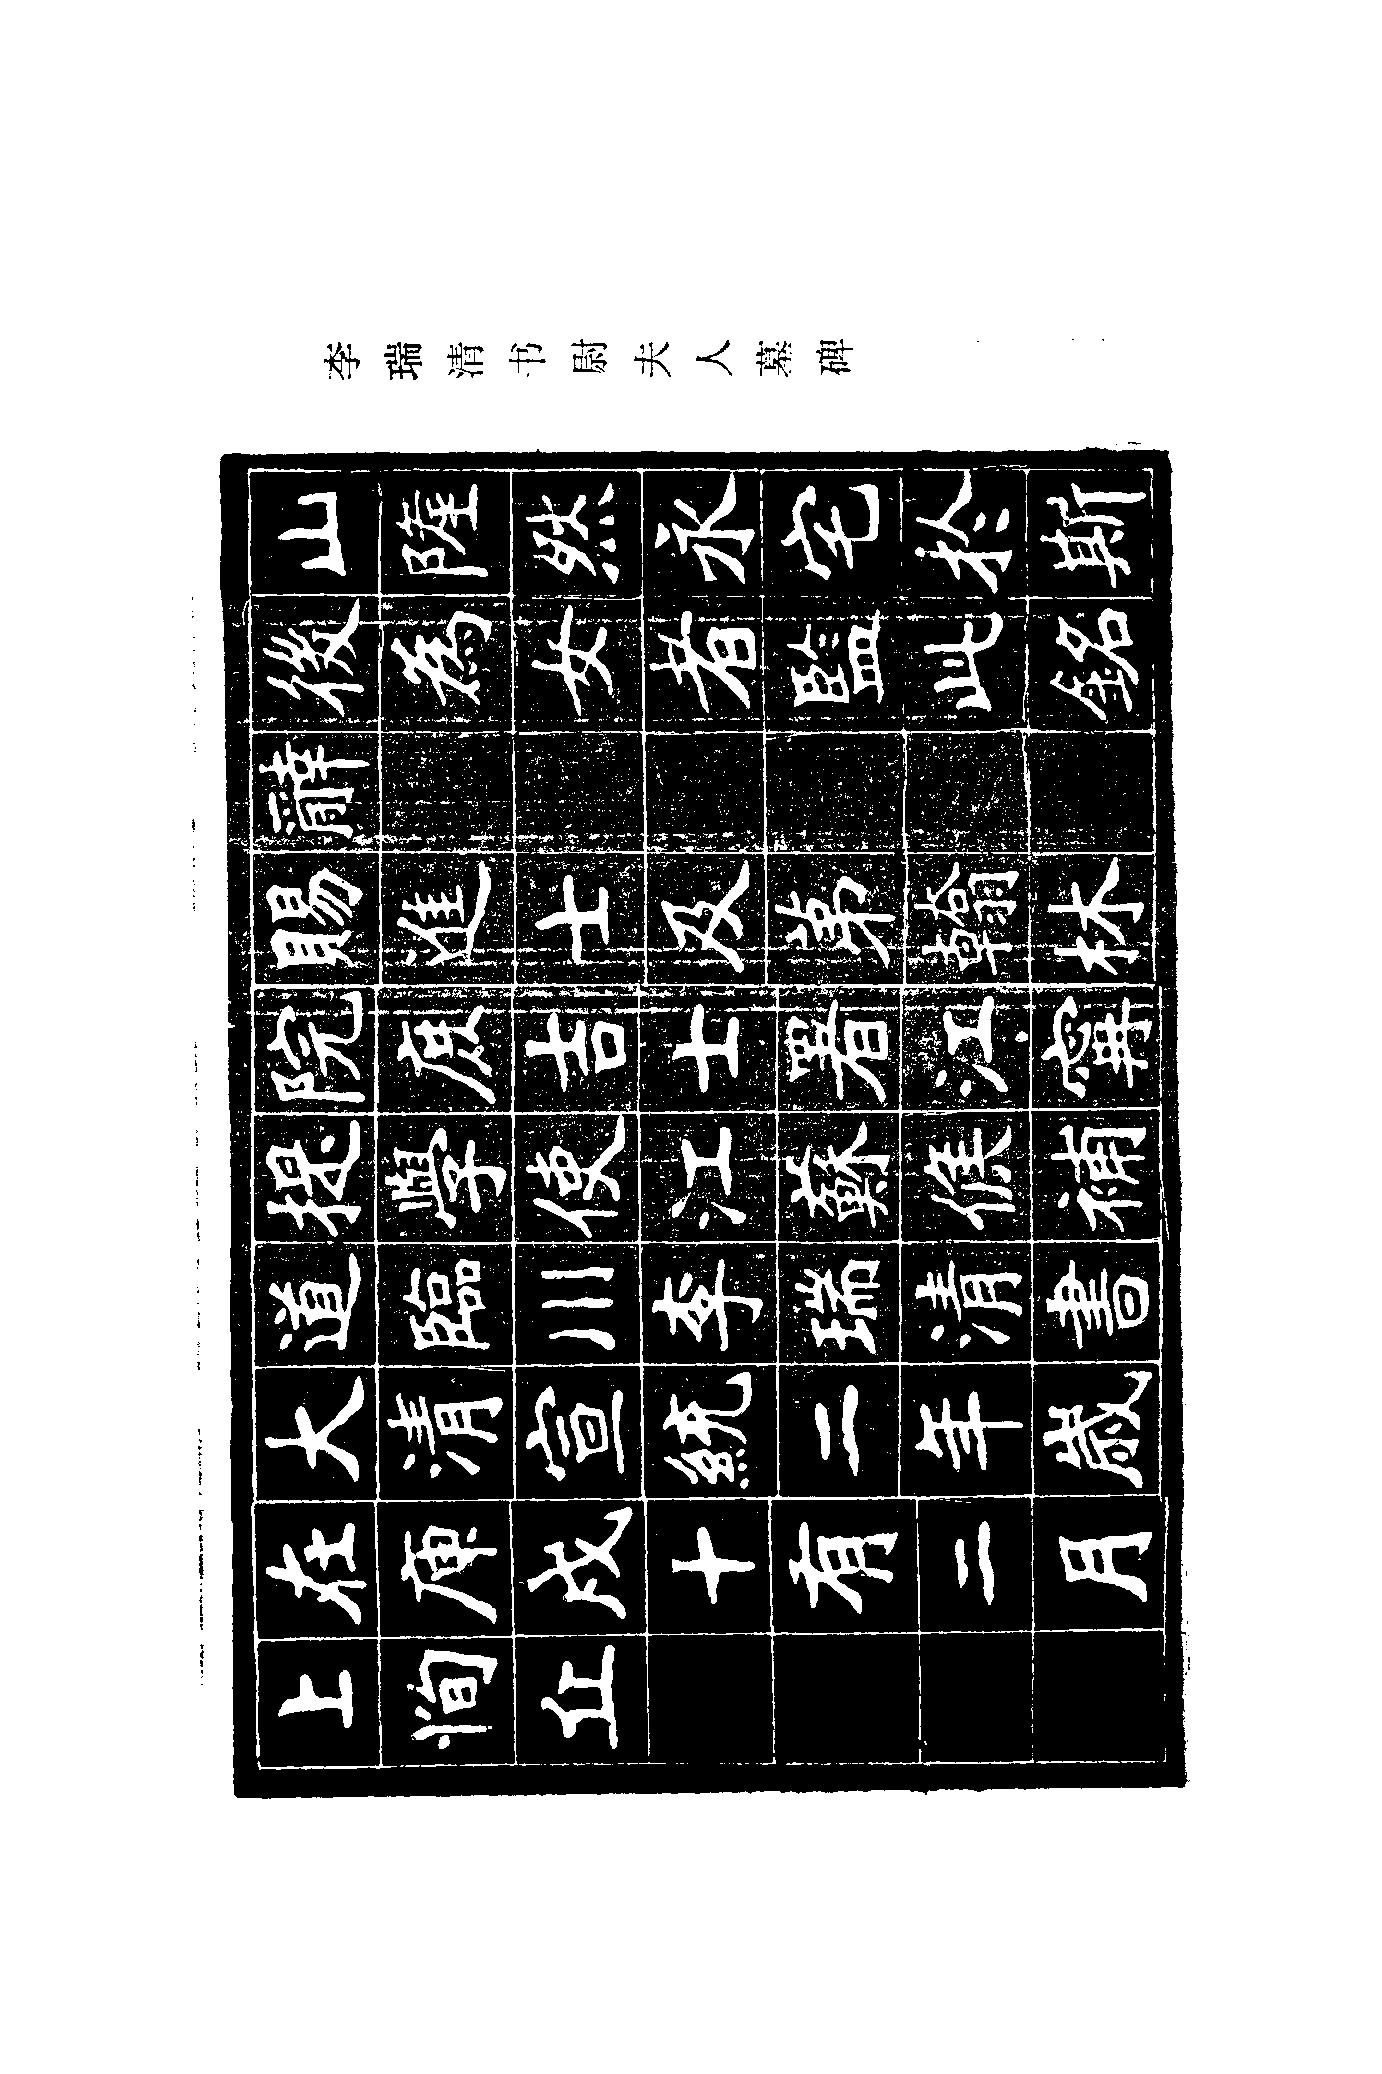 李瑞清书尉夫人墓碑
山隆然永宅於斯
後為女者監此銘
辭
賜進士及第翰林
院庶吉士署江寧
提學使江蘇候補
道臨川李瑞清書
大清宣統二年歲
在庚戌十有二月
上恂立